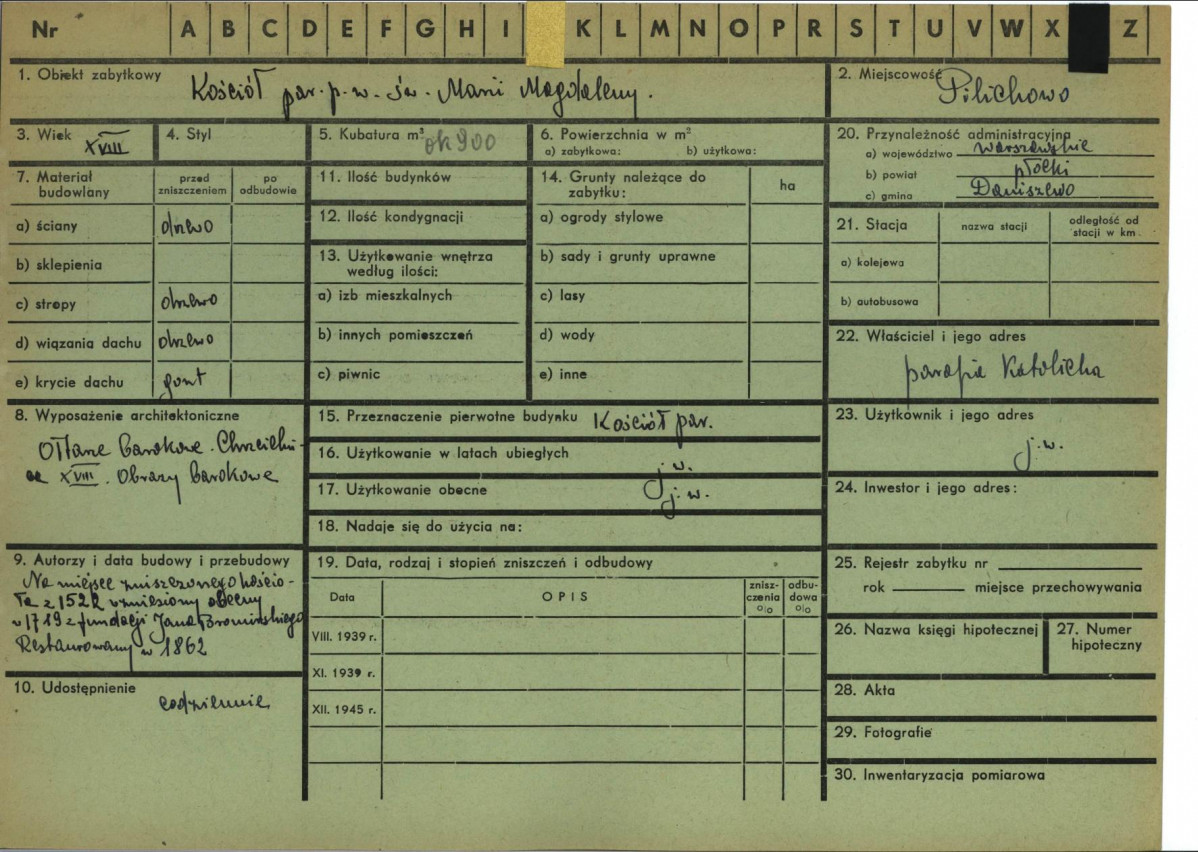 Nr A B C D E F G H I K L M N O P R S T U V W X Z
1. Obiekt zabytkowy Kościół par. p. w. św. Marii Magdaleny.
2. Miejscowość Pilichowo
3. Wiek XVIII
4. Styl
5. Kubatura m³ ok 900
6. Powierzchnia w m²
a) zabytkowa: b) użytkowa:
7. Materiał budowlany
przed zniszczeniem
po odbudowie
a) ściany drzewo
b) sklepienia
c) stropy drzewo
d) wiązania dachu drzewo
e) krycie dachu gont
8. Wyposażenie architektoniczne
Ołtarze barokowe. Chrzciel
XVIII. Obrazy barokowe
9. Autorzy i data budowy i przebudowy
Na miejsce zniszczonego kościo-
ła z 1522 wzniesiony obecny
w 1719 z fundacji Jana
Restaurowany w 1862
10. Udostępnienie
codziennie
11. Ilość budynków
12. Ilość kondygnacji
13. Użytkowanie wnętrza
według ilości:
a) izb mieszkalnych
b) innych pomieszczeń
c) piwnic
14. Grunty należące do
zabytku:
ha
a) ogrody stylowe
b) sady i grunty uprawne
c) lasy
d) wody
e) inne
15. Przeznaczenie pierwotne budynku Kościół par.
16. Użytkowanie w latach ubiegłych
j. w.
17. Użytkowanie obecne j. w.
18. Nadaje się do użycia na:
19. Data, rodzaj i stopień zniszczeń i odbudowy
Data
OPIS
znisz-
czenia
o|o
odbu-
dowa
o|o
VIII. 1939 r.
XI. 1939 r.
XII. 1945 r.
20. Przynależność administracyjna
a) województwo warszawskie
b) powiat płocki
c) gmina Daniszewo
21. Stacja
nazwa stacji
odległość od
stacji w km
a) kolejowa
b) autobusowa
22. Właściciel i jego adres
parafia Katolicka
23. Użytkownik i jego adres
j. w.
24. Inwestor i jego adres:
25. Rejestr zabytku nr
rok miejsce przechowywania
26. Nazwa księgi hipotecznej
27. Numer
hipoteczny
28. Akta
29. Fotografie
30. Inwentaryzacja pomiarowa